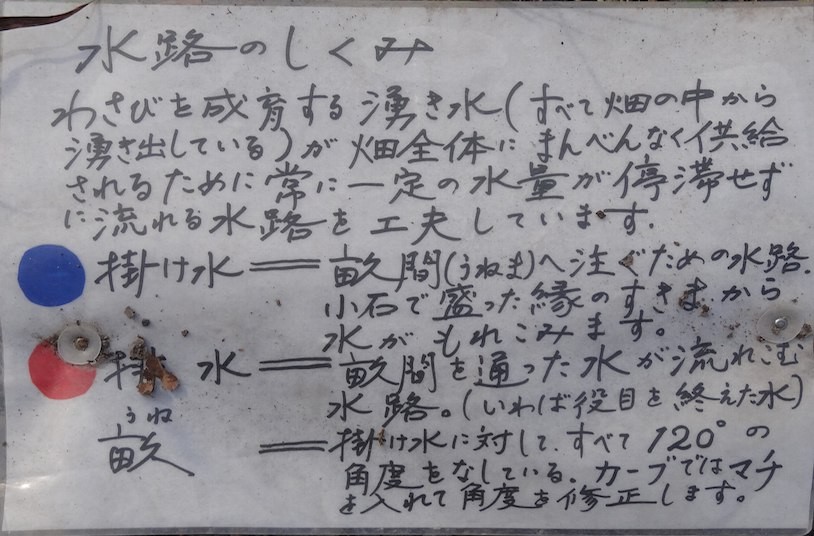 水路のしくみ
わさびを成育する湧き水(すべて畑の中から
湧き出している)が畑全体にまんべんなく供給
されるために常に一定の水量が停滞せず
に流れる水路を工夫しています.
掛け水＝畝間(うねま)へ注ぐための水路.
小石で盛った縁のすきまから
水がもれこみます。
水＝畝間を通った水が流れこむ
水路。(いわば役目を終えた水)
うね
畝＝掛け水に対して、すべて120°の
角度をなしている。カーブではマチ
を入れて角度を修正します。